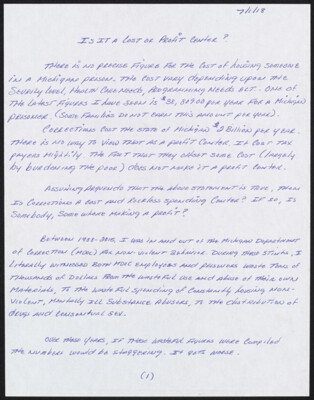 7/1/18
Is It A Cost or Profit Center?
There is no precise figure for the cost of housing someone
in a Michigan prison. The cost vary depending upon the
Security level, Health Care Needs, Programming Needs ect. One of
The latest figures I have seen is $38, per year for a Michigan
prisoner (Some families do not earn this amount per year).
Corrections cost the state of Michigan $2 Billion per year.
There is no way to view that as a profit center. It cost tax
payers mightily. The fact that they offset some cost (largely
by burdening the poor) does not make it a profit center.
Assuming arguendo that the above statement is true, then
is Corrections a cost and reckless spending center? If so, is
Somebody, Some where making a profit?
Between 1988-2015, I was in and out of the Michigan Department
of Correction (MDOC) for non-violent behavior. During these stints, I
literally witnessed both MDOC employees and prisoners waste tens of
thousands of dollars from the wasteful use and abuse of their own
materials, to the wasteful spending of constantly housing non-
violent, Mentally ill Substance Abusers, to the distribution of
drugs and consensual sex.
Over these years, if these wasteful figures were compiled
the numbers would be staggering. It gets worse.
(1)